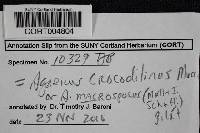 CORT004804
Annotation Slip from the SUNY Cortland Herbarium (CORT)
Specimen No. 10329 TJB
= Agaricus crocodilinus Murr.
or A. macrosporus (Moller &
Schaff.)
Pilát
annotated by Dr. Timothy J. Baroni
23 NOV 2016